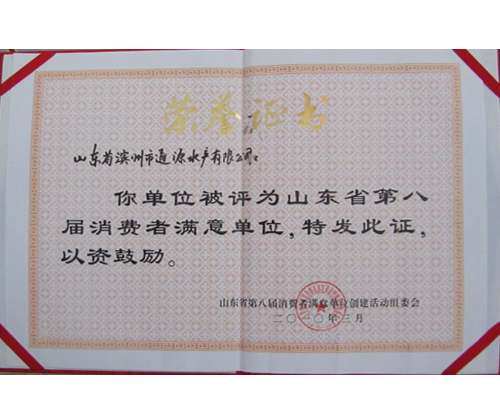 荣誉证书
山东省滨州市通源水产有限公司：
你单位被评为山东省第八
届消费者满意单位，特发此证，
以资鼓励。
山东省第八届消费者满意单位创建活动组委会
二〇一〇年三月